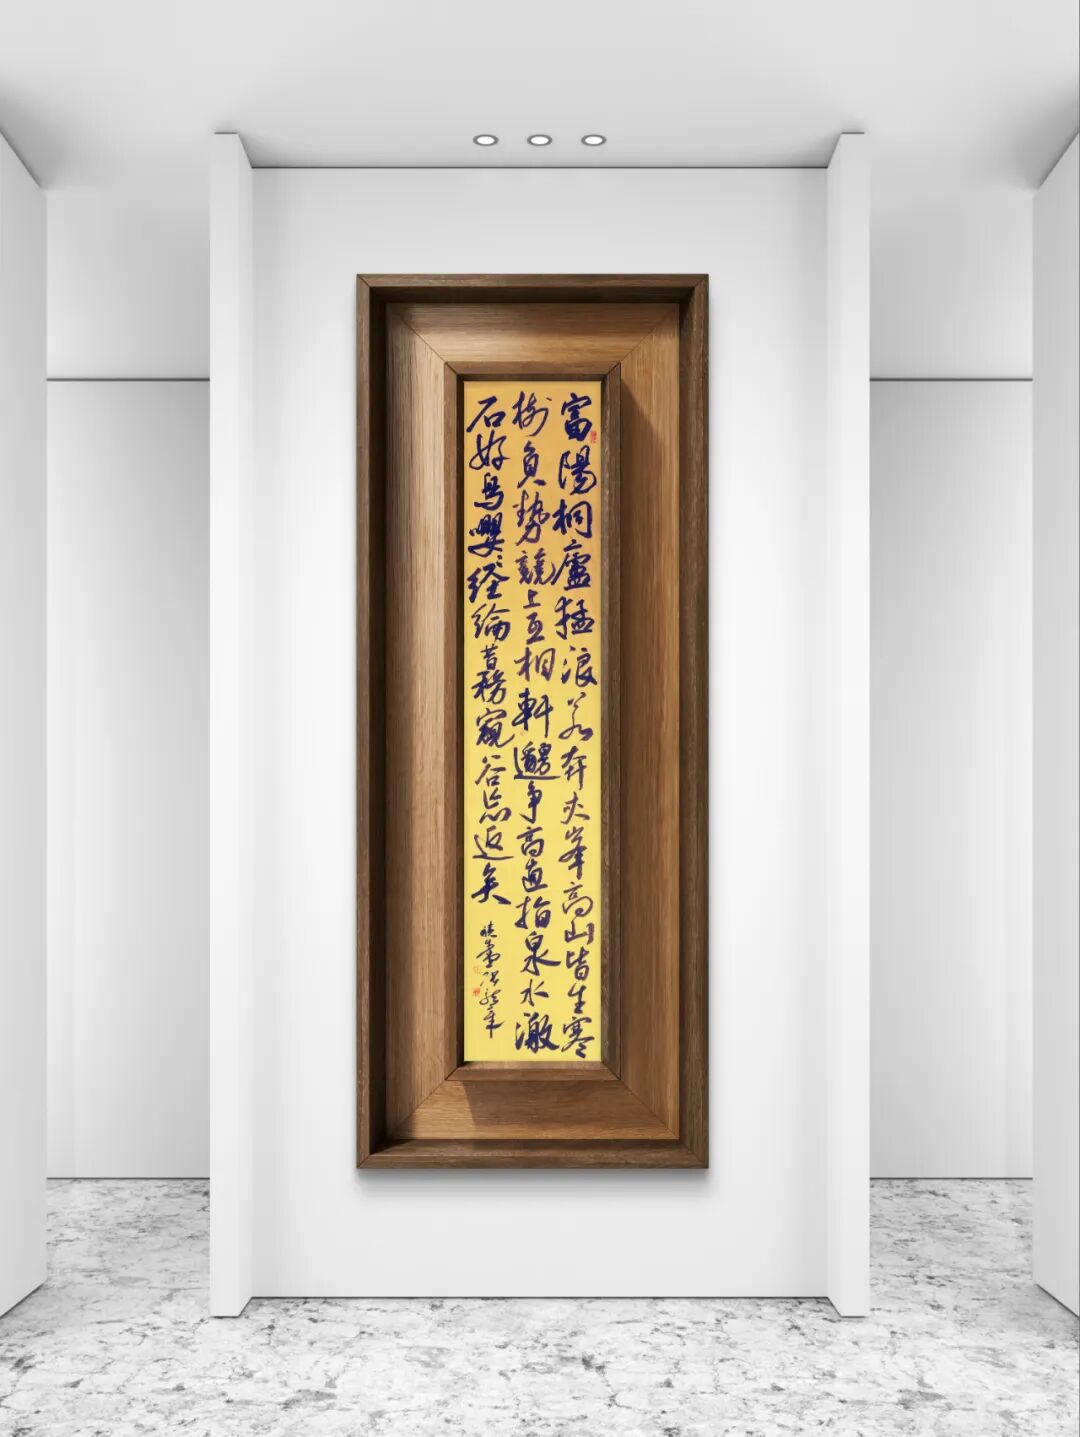 富陽桐廬猛浪若奔夾峯高山皆生寒
樹負勢競上互相軒邈争高直指泉水激
石好鳥嚶〻経綸昔務窺谷忘返矣